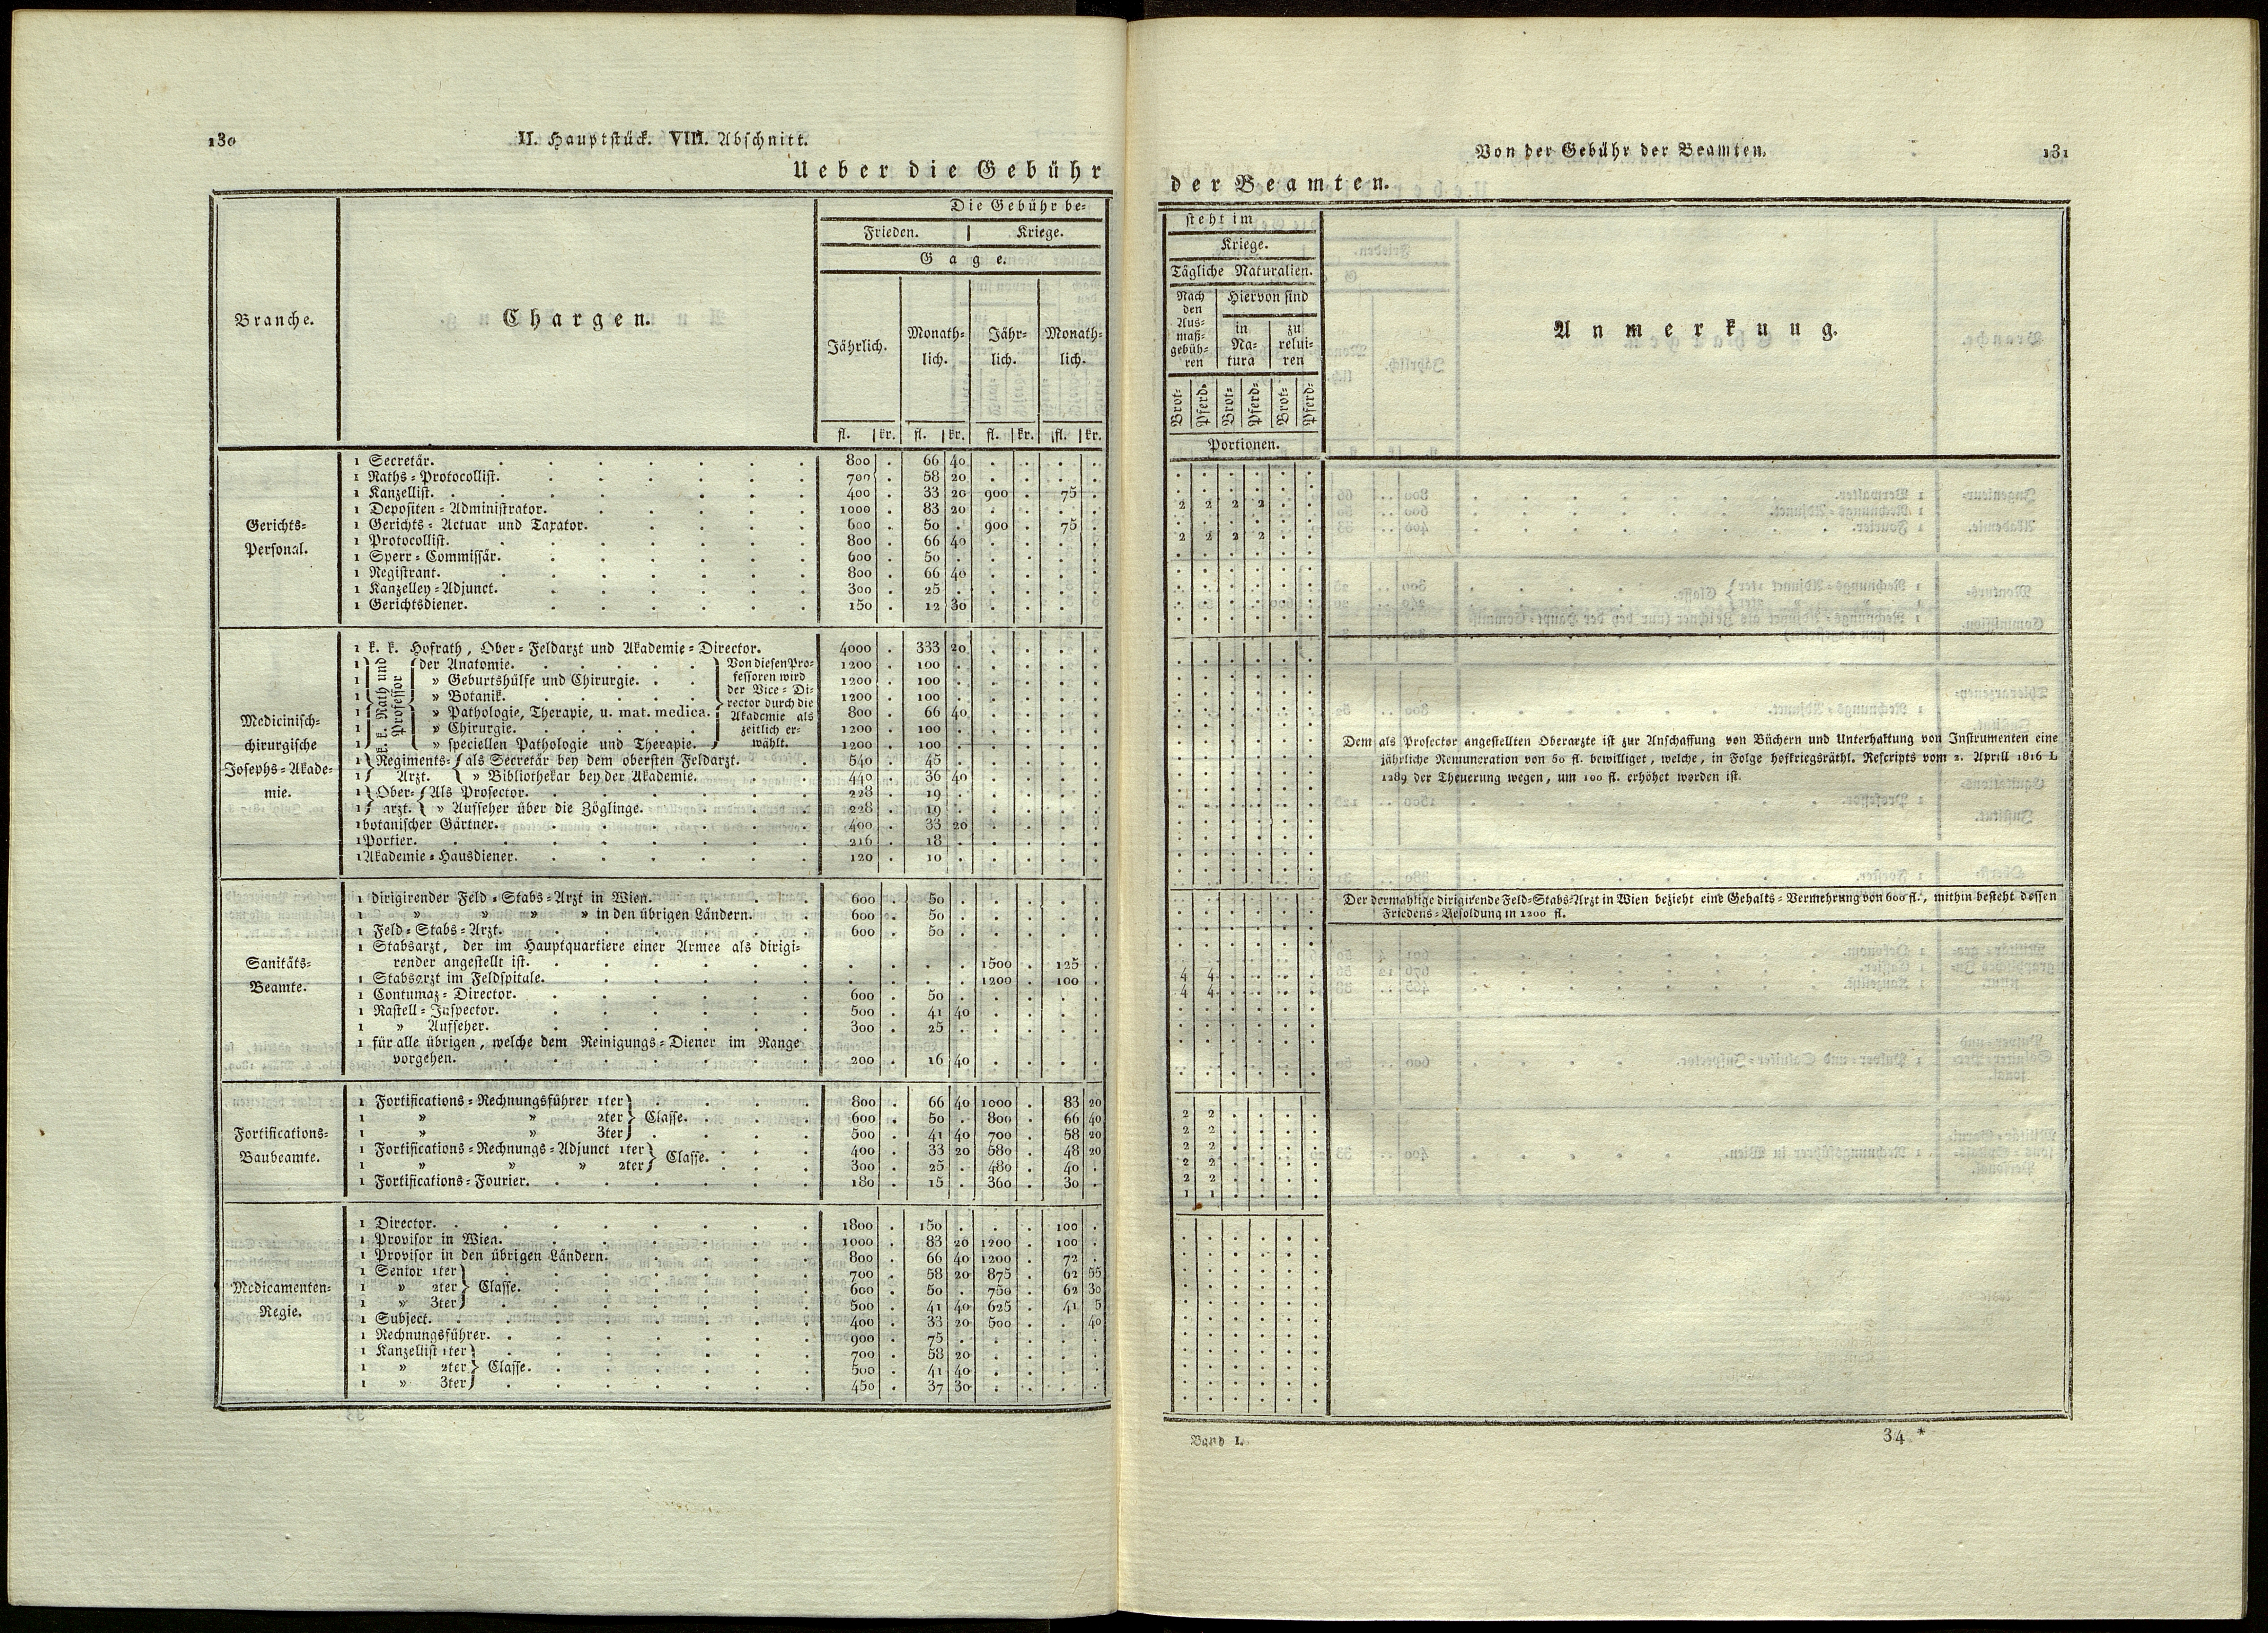 130
II. Hauptstück. VIII. Abschnitt.
Ueber die Gebühr
Branche.
Chargen.
Die Gebühr be-
Frieden. | Kriege.
Gage.
Jährlich.
Monath-
lich.
Jähr-
lich.
Monath-
lich.
fl. kr. fl. kr. fl. kr. fl. kr.
Gerichts-
Personal.
1 Secretär. 800 . 66 40 . . . .
1 Raths-Protocollist. 700 . 58 20 . . . .
1 Kanzellist. 400 . 33 20 900 . 75 .
1 Depositen-Administrator. 1000 . 83 20 . . . .
1 Gerichts-Actuar und Taxator. 600 . 50 . 900 . 75 .
1 Protocollist. 800 . 66 40 . . . .
1 Sperr-Commissär. 600 . 50 . . . . .
1 Registrant. 800 . 66 40 . . . .
1 Kanzelley-Adjunct. 300 . 25 . . . . .
1 Gerichtsdiener. 150 . 12 30 . . . .
Medicinisch-
chirurgische
Josephs-Akade-
mie.
1 k. k. Hofrath, Ober-Feldarzt und Akademie-Director. 4000 . 333 20 . . . .
k. k. Rath und
Professor
1 der Anatomie. 1200 . 100 . . . . .
1 » Geburtshülfe und Chirurgie. 1200 . 100 . . . . .
1 » Botanik. 1200 . 100 . . . . .
1 » Pathologie, Therapie, u. mat. medica. 800 . 66 40 . . . .
1 » Chirurgie. 1200 . 100 . . . . .
1 » speciellen Pathologie und Therapie. 1200 . 100 . . . . .
Von diesen Pro-
fessoren wird
der Vice-Di-
rector durch die
Akademie als
zeitlich er-
wählt.
1 Regiments- als Secretär bey dem obersten Feldarzt. 540 . 45 . . . . .
1 Arzt. » Bibliothekar bey der Akademie. 440 . 36 40 . . . .
1 Ober- Als Prosector. 228 . 19 . . . . .
1 arzt. » Aufseher über die Zöglinge. 228 . 19 . . . . .
1 botanischer Gärtner. 400 . 33 20 . . . .
1 Portier. 216 . 18 . . . . .
1 Akademie-Hausdiener. 120 . 10 . . . . .
Sanitäts-
Beamte.
1 dirigirender Feld-Stabs-Arzt in Wien. 600 . 50 . . . . .
1 » » » » in den übrigen Ländern. 600 . 50 . . . . .
1 Feld-Stabs-Arzt. 600 . 50 . . . . .
1 Stabsarzt, der im Hauptquartiere einer Armee als dirigi-
render angestellt ist. . . . . 1500 . 125 .
1 Stabsarzt im Feldspitale. . . . . 1200 . 100 .
1 Contumaz-Director. 600 . 50 . . . . .
1 Rastell-Inspector. 500 . 41 40 . . . .
1 » Aufseher. 300 . 25 . . . . .
1 für alle übrigen, welche dem Reinigungs-Diener im Range
vorgehen. 200 . 16 40 . . . .
Fortifications-
Baubeamte.
1 Fortifications-Rechnungsführer 1ter 800 . 66 40 1000 . 83 20
1 » » 2ter Classe. 600 . 50 . 800 . 66 40
1 » » 3ter 500 . 41 40 700 . 58 20
1 Fortifications-Rechnungs-Adjunct 1ter Classe. 400 . 33 20 580 . 48 20
1 » » » 2ter 300 . 25 . 480 . 40 .
1 Fortifications-Fourier. 180 . 15 . 360 . 30 .
Medicamenten-
Regie.
1 Director. 1800 . 150 . . . 100 .
1 Provisor in Wien. 1000 . 83 20 1200 . 100 .
1 Provisor in den übrigen Ländern. 800 . 66 40 1200 . 72 .
1 Senior 1ter 700 . 58 20 875 . 62 55
1 » 2ter Classe. 600 . 50 . 750 . 62 30
1 » 3ter 500 . 41 40 625 . 41 5
1 Subject. 400 . 33 20 500 . . 40
1 Rechnungsführer. 900 . 75 . . . . .
1 Kanzellist 1ter 700 . 58 20 . . . .
1 » 2ter Classe. 500 . 41 40 . . . .
1 » 3ter 450 . 37 30 . . . .
Von der Gebühr der Beamten.
131
der Beamten.
steht im
Kriege.
Tägliche Naturalien.
Nach
den
Aus-
maß-
gebüh-
ren
Hiervon sind
in
Na-
tura
zu
relui-
ren
Brot- Pferd- Brot- Pferd- Brot- Pferd-
Portionen.
Anmerkung.
2 2 2 2 . .
2 2 2 2 . .
Dem als Prosector angestellten Oberarzte ist zur Anschaffung von Büchern und Unterhaltung von Instrumenten eine
jährliche Remuneration von 50 fl. bewilliget, welche, in Folge hofkriegsräthl. Rescripts vom 2. Aprill 1816 L
1289 der Theuerung wegen, um 100 fl. erhöhet worden ist.
Der dermahlige dirigirende Feld-Stabs-Arzt in Wien bezieht eine Gehalts-Vermehrung von 600 fl., mithin besteht dessen
Friedens-Besoldung in 1200 fl.
4 4 . . . .
4 4 . . . .
2 2 . . . .
2 2 . . . .
2 2 . . . .
2 2 . . . .
2 2 . . . .
1 1 . . . .
Band I.
34 *